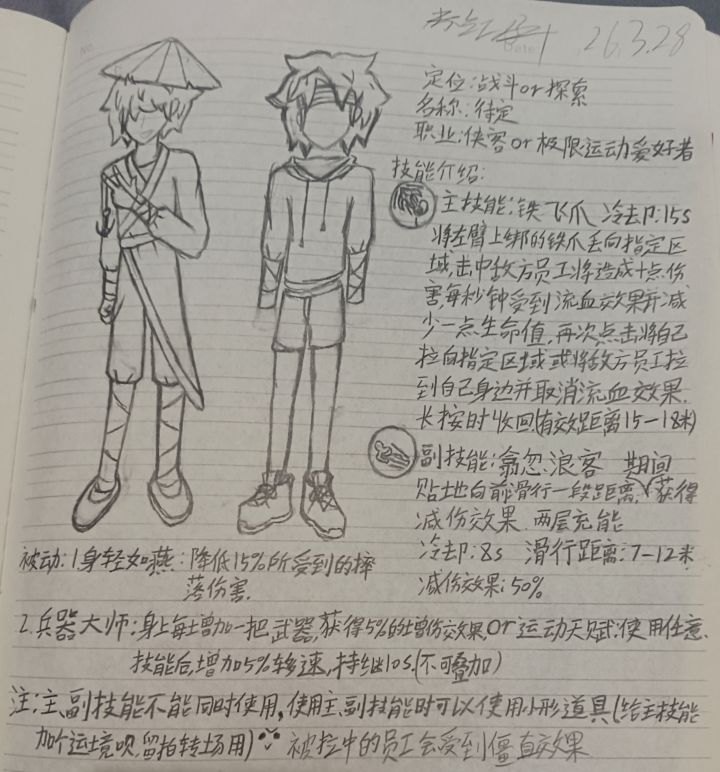 No.
Date
26.3.28
定位:战斗or探索
名称:待定
职业:侠客or极限运动爱好者
技能介绍:
主技能:铁飞爪 冷却:15s
将左臂上绑的铁爪丢向指定区
域,击中敌方员工将造成十点伤
害,每秒钟受到流血效果并减
少一点生命值,再次点击将自己
拉向指定区域或将敌方员工拉
到自己身边并取消流血效果.
长按时收回(有效距离15-18米)
副技能:翕忽.浪客 期间
贴地向前滑行一段距离,获得
减伤效果.两层充能
冷却:8s 滑行距离:7-12米
减伤效果:50%
被动:1.身轻如燕:降低15%所受到的摔
落伤害.
2.兵器大师:身上每增加一把武器,获得5%的增伤效果,or运动天赋:使用任意
技能后,增加5%移速,持续10s.(不可叠加)
注:主、副技能不能同时使用,使用主、副技能时可以使用小形道具(给主技能
加个运境呗,留拍转场用) 被拉中的员工会受到僵直效果